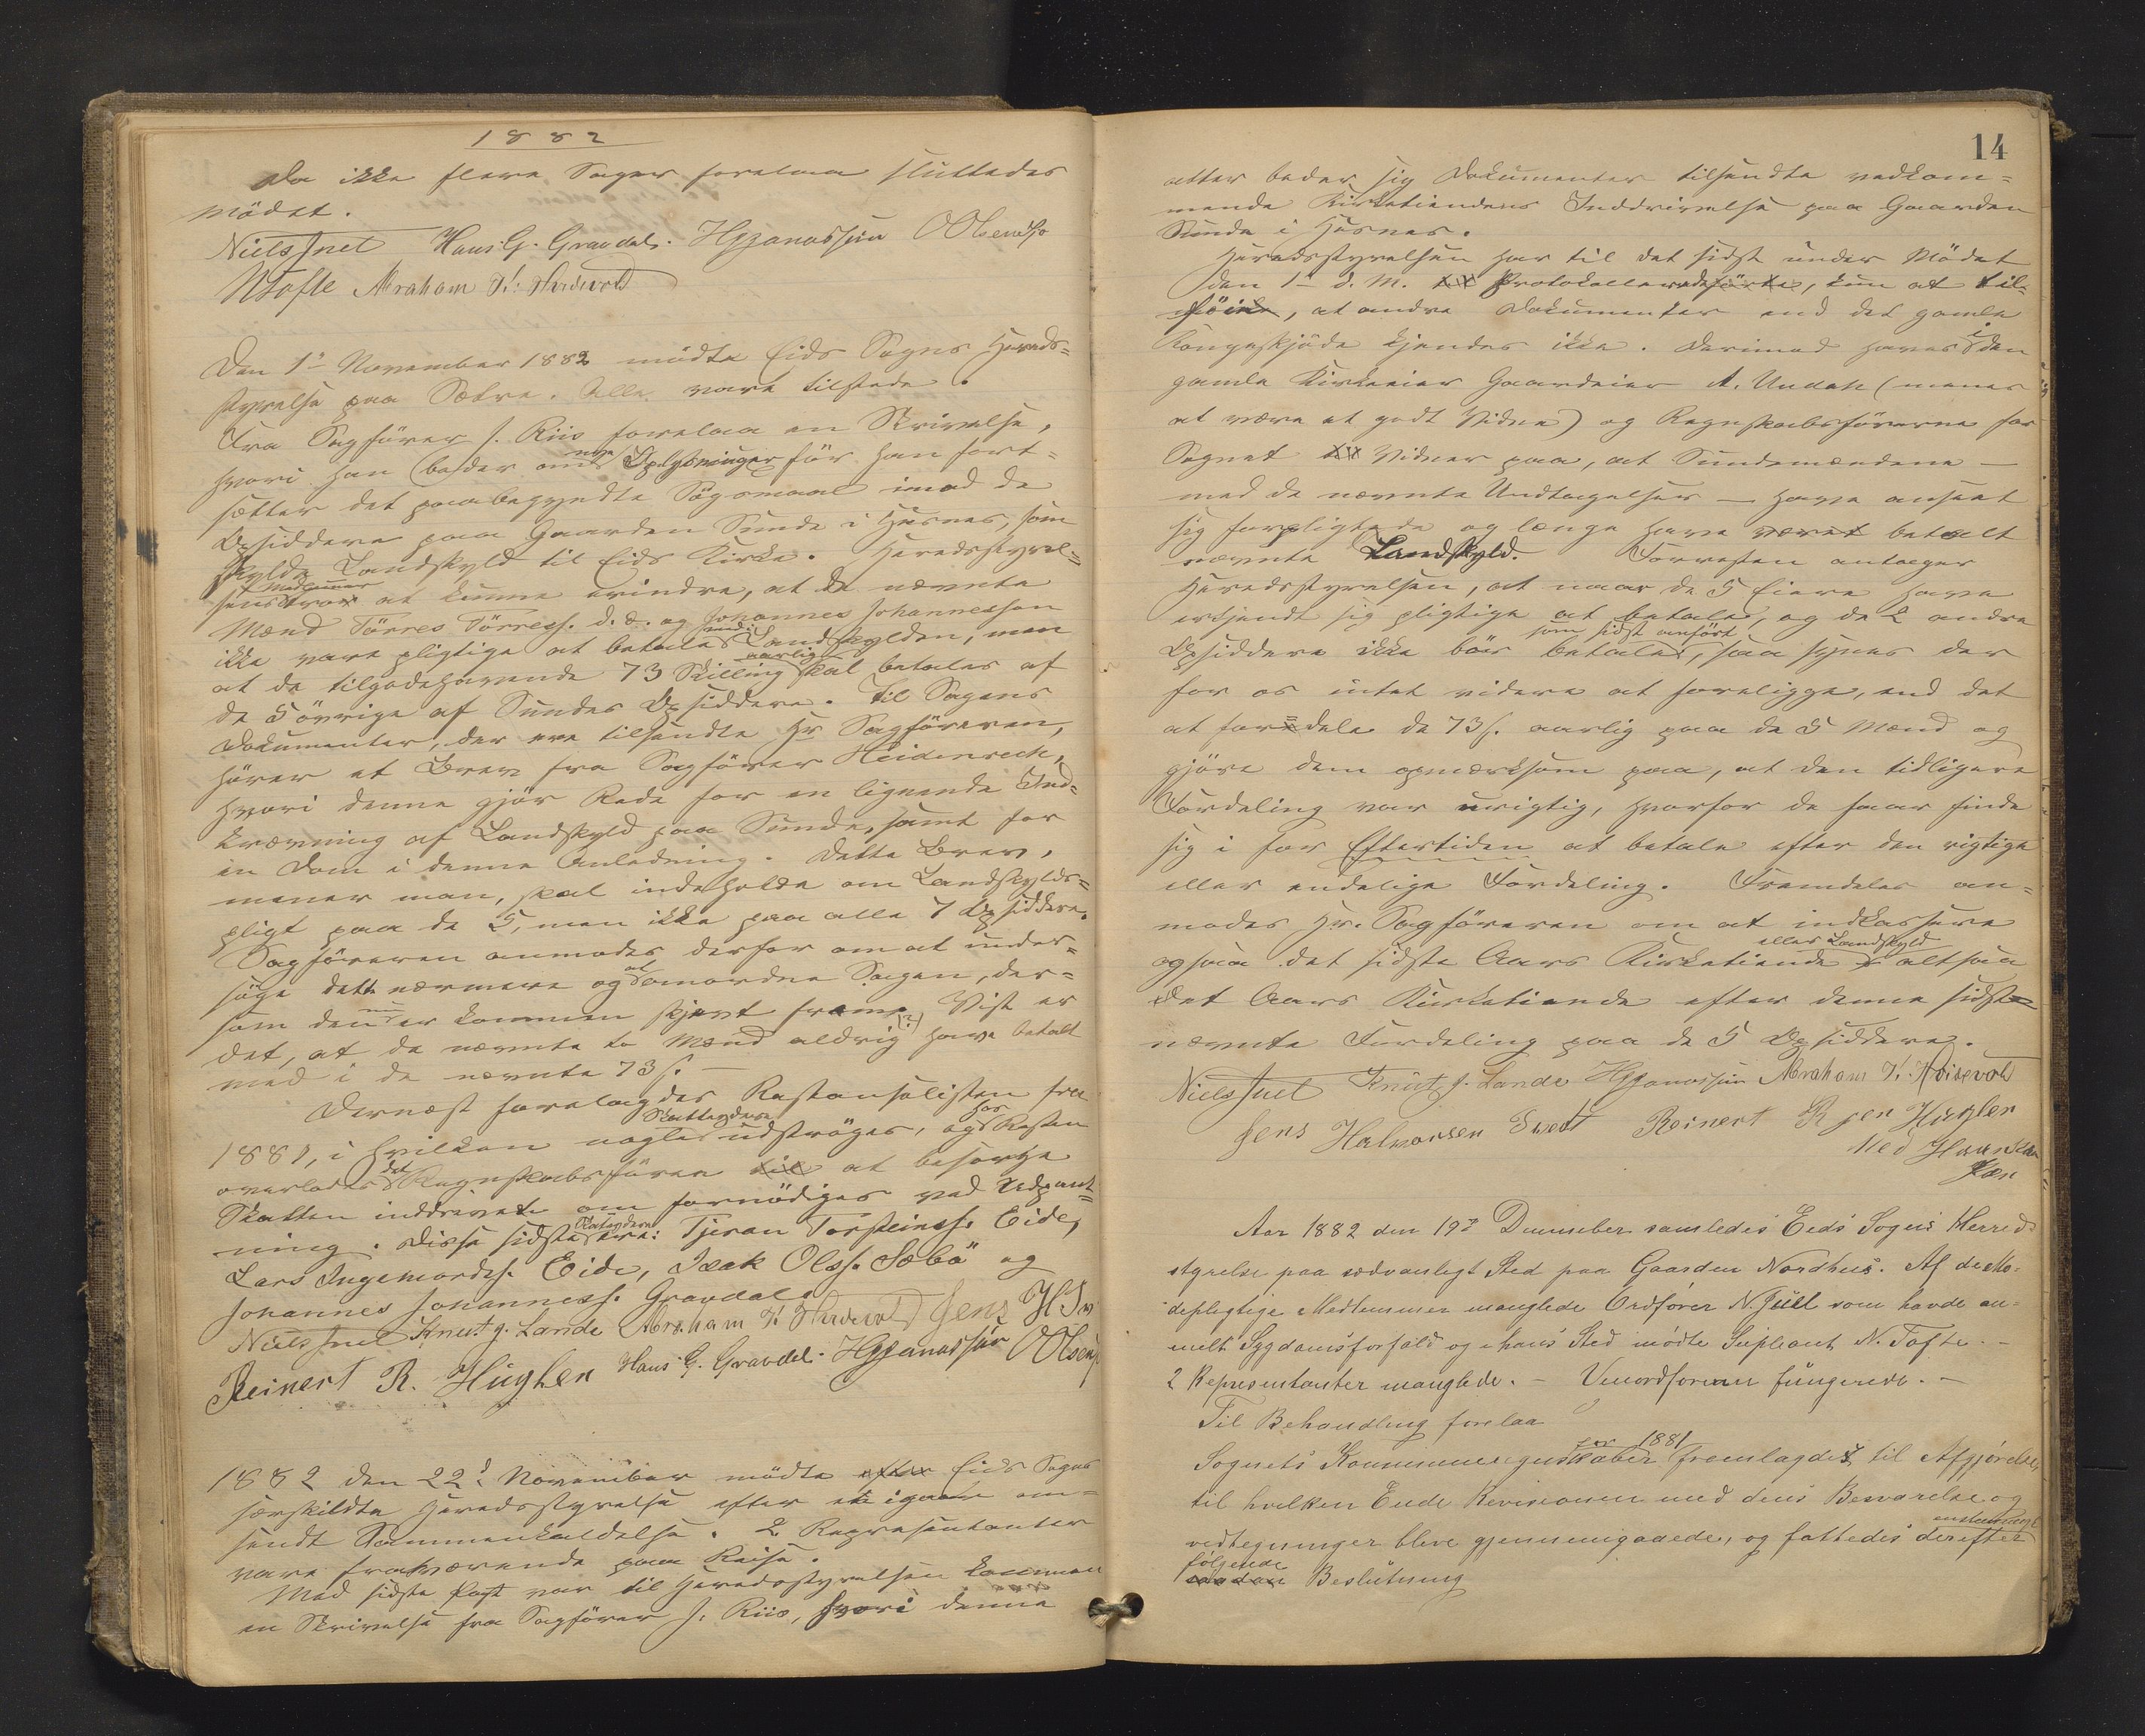 1882
Da ikke flere Sager forelaa sluttedes
Mödet.
Niels Juel Hans G. Gravdal. H Jganassen O Olsen
N Tofte Abraham K.
Den 1ste November 1882 mödte Eids Sogns Hereds=
styrelse paa Sætre. Alle vare tilstede.
Fra Sagförer J. Riis forelaa en Skrivelse,
hvori han beder om nye Oplysninger för han fort=
sætter det paabegyndte Sögsmaal imod de
Opsiddere paa Gaarden Sunde i Husnes, som
skylde Landskyld til Eids Kirke. Heredsstyrel=
sens Medlemmer tror at kunne erindre, at de nævnte
Mænd Törres Törress. d. æ. og Johannes Johannessen
ikke vare pligtige at betale Landskylden, men
at de tilgodehavende 73 Skilling aarlig skal betales af
de 5 övrige af Sundes Opsiddere. Til Sagens
Dokumenter, der ere tilsendte Hr Sagföreren,
hörer et Brev fra Sagförer Heidenrech,
hvori denne gjör Rede for en lignende Ind=
krævning af Landskyld paa Sunde, samt for
en Dom i denne Anledning. Dette Brev,
mener man, skal indeholde om Landskylds=
pligt paa de 5, men ikke paa alle 7 Opsiddere.
Sagföreren anmodes derfor om at under=
söge dette nærmere og at omordne Sagen, der=
som den nu er kommen skjevt frem (?) Vist er
det, at de nævnte to Mænd aldrig have betalt
med i de nævnte 73 s. —
Dernæst forelagdes Restanselisten fra
1881, i hvilken nogle Skatteydere udströges, og hos Resten
overlodes det Regnskabsföreren at besörge
Skatten inddrevet om fornödiges ved Udpant=
ning. Disse sidste Skatydere ere: Tjeran Torsteinss. Eide,
Lars Ingemordss. Eide, Isak Olss. Sæbö og
Johannes Johanness. Gravdal.
Niels Juel Knut J. Lande Abraham K. Jens H Sv
Reinert R. Huglen Hans G. Gravdal. H Jganassen O Olsen
1882 den 22de November mödte Eids Sogns
særskildte Heredsstyrelse efter en igaar om=
sendt Sammenkaldelse. 2 Repræsentanter
vare fraværende paa Reise.
Med sidste Post var til Heredsstyrelsen kommen
en Skrivelse fra Sagförer J. Riis, hvori denne
14
atter beder sig Dokumenter tilsendte vedkom=
mende Kirketiendens Inddrivelse paa Gaarden
Sunde i Husnes.
Heredsstyrelsen har til det sidst under Mödet
den 1ste d. M. Protokollerede, kun at til=
föie, at andre Dokumenter end det gamle
Kongeskjöde kjendes ikke. Derimod haves i den
gamle Kirkeeier Gaardeier A. Undah (menes
at være et godt Vidne) og Regnskabsförerne for
Sognet Vidner paa, at Sundemændene —
med de nævnte Undtagelser — have anseet
sig forpligtede og længe have været betalt
nævnte Landskyld. Forresten antager
Heredsstyrelsen, at naar de 5 Eiere have
erkjendt sig pligtige at betale, og de 2 andre
Opsiddere ikke bör betale, som sidst anfört, saa synes der
for os intet videre at foreligge, end det
at fordele de 73 s. aarlig paa de 5 Mænd og
gjöre dem opmærksom paa, at den tidligere
Fordeling var urigtig, hvorfor de faar finde
sig i for Eftertiden at betale efter den rigtige
eller endelige Fordeling. Fremdeles an=
modes Hr. Sagföreren om at indkassere
ogsaa det sidste Aars Kirketiende eller Landskyld altsaa
det Aars Kirketiende efter denne sidst
nævnte Fordeling paa de 5 Opsiddere.
Niels Juel Knut J. Lande H Jganassen Abraham K.
Jens Halvorsen Reinert R Huglen
Med Haand
Pæn
Aar 1882 den 19de December samledes Eeds Sogns Herred-
styrelse paa sædvanligt Sted paa Gaarden Nordhus. Af de Mö-
depligtige Medlemmer manglede Ordförer N. Juel som havde an-
melt Sygdomsforfald og i hans Sted mödte Supleant N. Tofte. —
2 Representanter manglede. — Viceordföreren fungerede. —
Til Behandling forelaa
Sognets Kommuneregnskaber for 1881 fremlagdes til Afgjörelse,
til hvilken Ende Revisionen med dens Besvarelse og
vedtegninger bleve gjennemgaaede, og fattedes derefter enstemmigt
følgende Beslutning